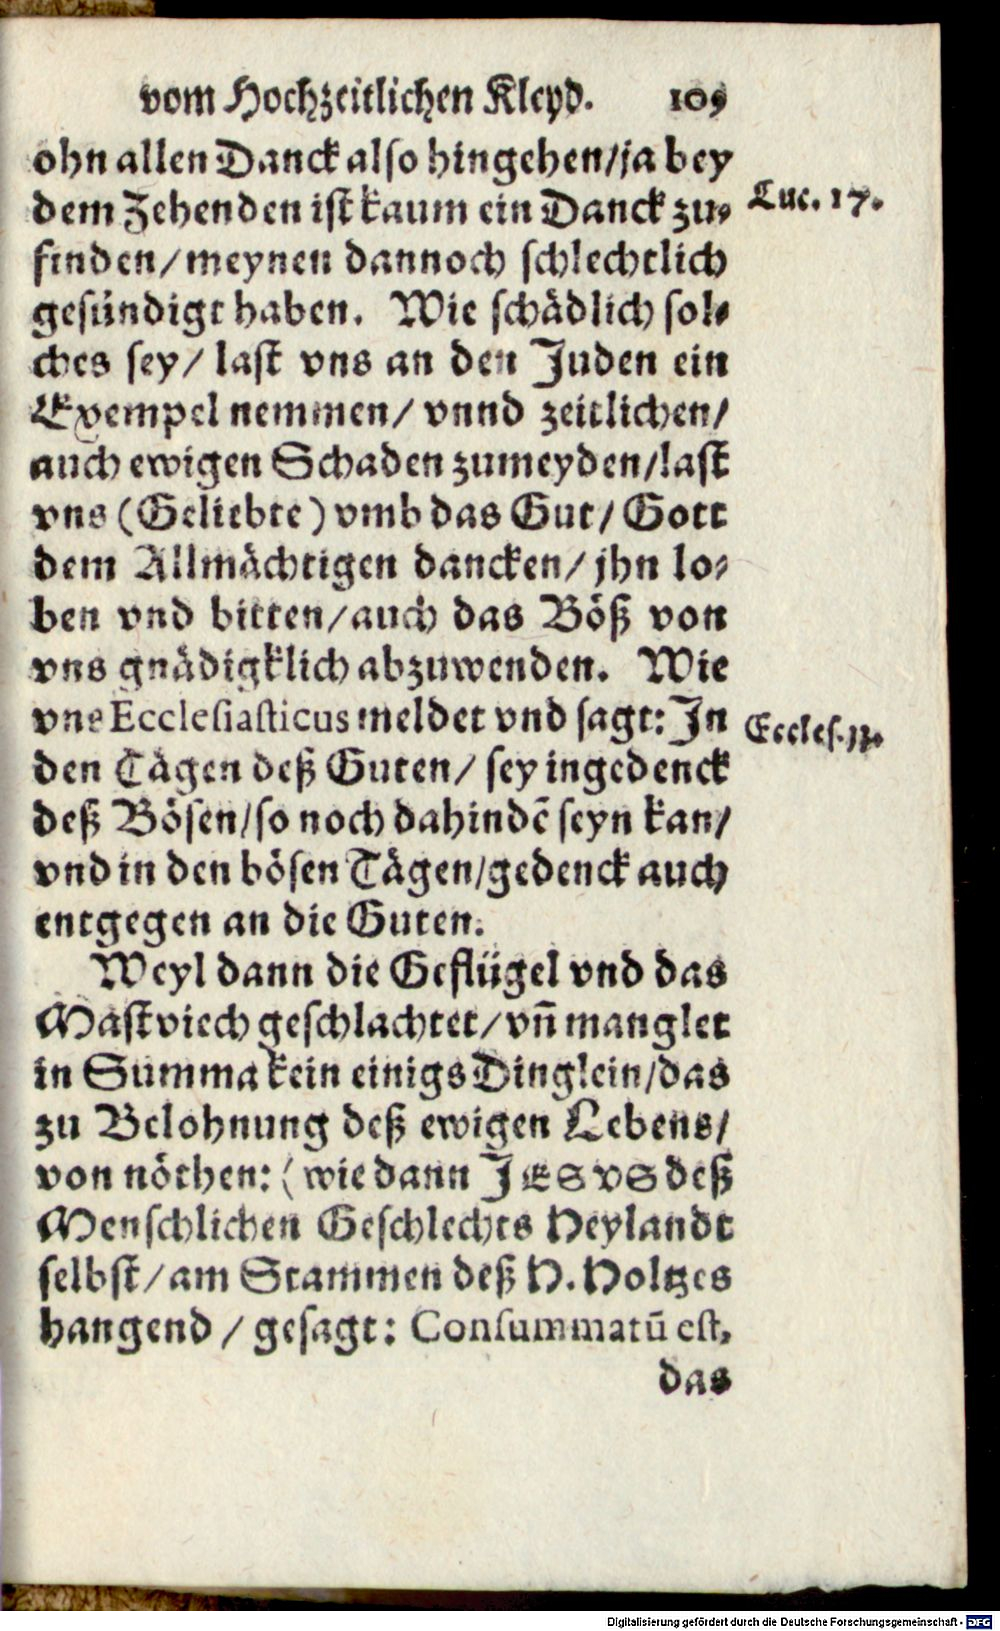 vom Hochzeitlichen Kleyd. 109
ohn allen Danck also hingehen/ja bey
dem Zehenden ist kaum ein Danck zu-
Luc. 17.
finden/meynen dannoch schlechtlich
gesündigt haben. Wie schädlich sol-
ches sey/ last vns an den Juden ein
Exempel nemmen/ vnnd zeitlichen/
auch ewigen Schaden zumeyden/last
vns (Geliebte) vmb das Gut/ Gott
dem Allmächtigen dancken/ jhn lo-
ben vnd bitten/auch das Böß von
vns gnädigklich abzuwenden. Wie
vns Ecclesiasticus meldet vnd sagt: In
Eccles.
den Tägen deß Guten/ sey ingedenck
deß Bösen/so noch dahindē seyn kan/
vnd in den bösen Tägen/gedenck auch
entgegen an die Guten.
Weyl dann die Geflügel vnd das
Mastviech geschlachtet/vñ manglet
in Summa kein einigs Dinglein/das
zu Belohnung deß ewigen Lebens/
von nöthen: (wie dann JESVS deß
Menschlichen Geschlechts Heylandt
selbst/am Stammen deß H. Holtzes
hangend/ gesagt: Consummatū est,
das
Digitalisierung gefördert durch die Deutsche Forschungsgemeinschaft - DFG